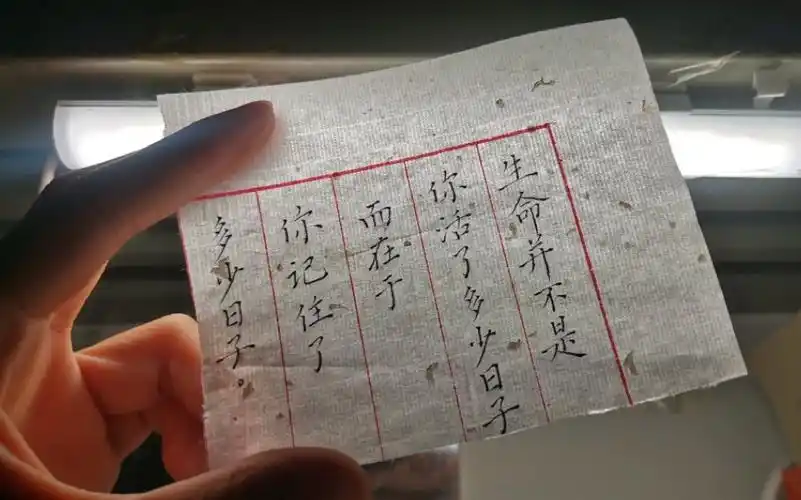 生命并不是
你活了多少日子
而在于
你记住了
多少日子。